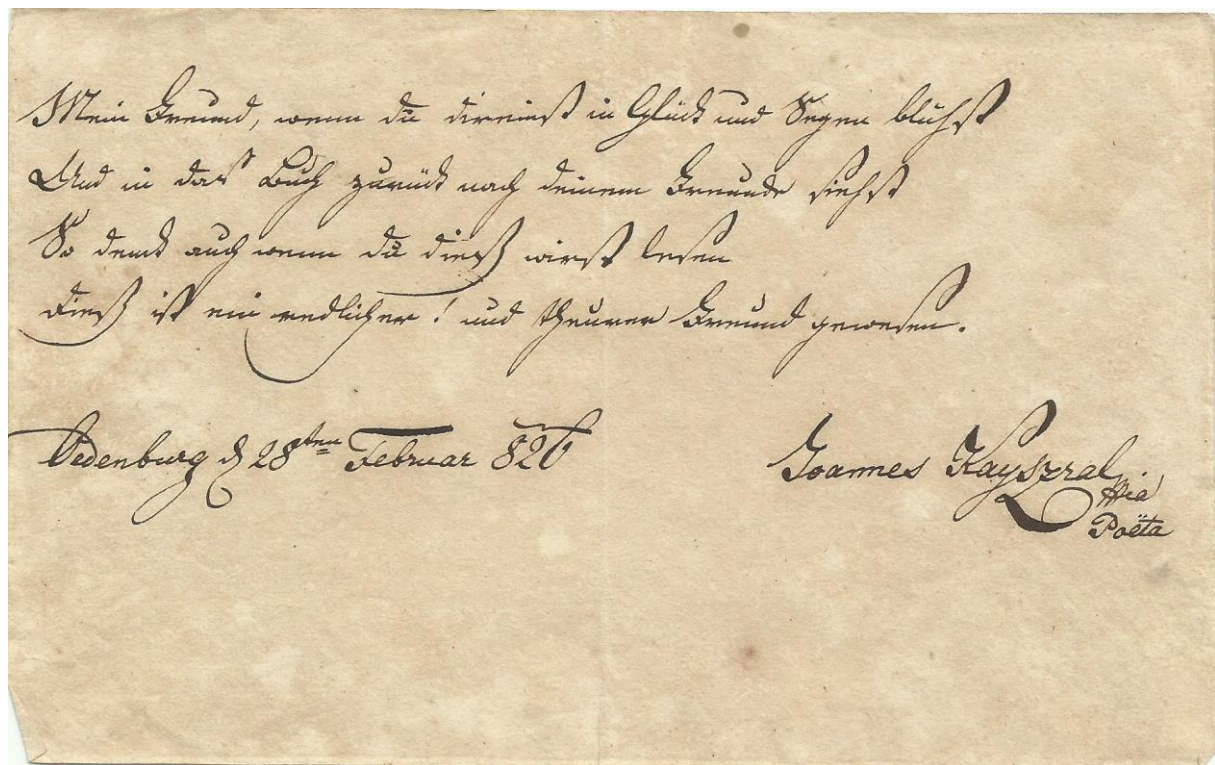 Mein Freund, wenn du dereinst in Glück und Segen blühst
Und in das Buch zurück nach deinem Freunde siehst
So denk auch wenn du dieß wirst lesen
Dieß ist ein redlicher! und theurer Freund gewesen.
Oedenburg d 28ten Februar 826
Joannes Kayszral
Poëta